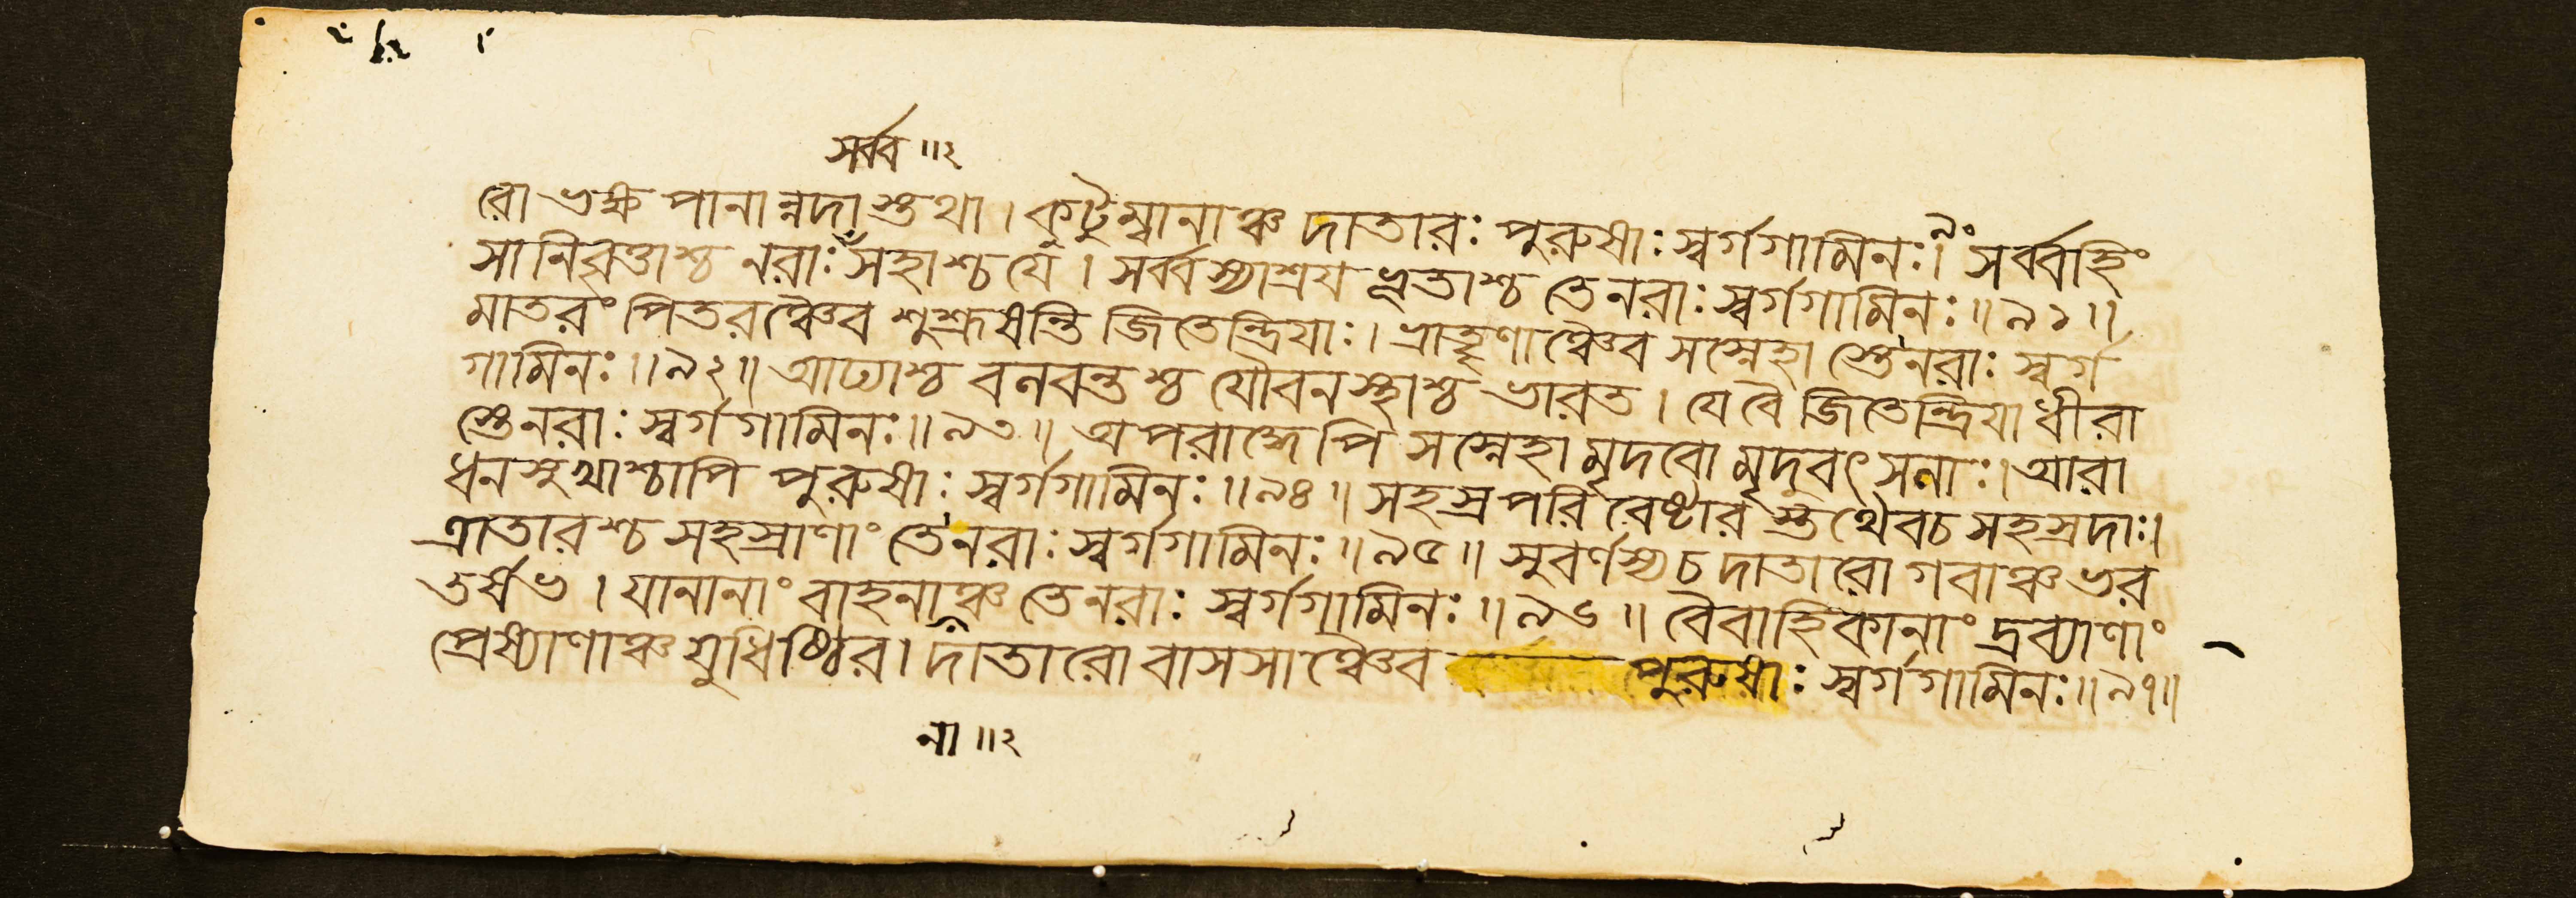 সর্ব্ব ॥ ২
রো ভক্ষ পানান্নদাস্তথা । কুটুম্বানাঞ্চ দাতারঃ পুরুষাঃ স্বর্গগামিনঃ । সর্ব্বহিং
সানিবৃত্তাশ্চ নরাঃ সহাশ্চ যে । সর্ব্বস্যাশ্রয ভূতাশ্চ তেনরাঃ স্বর্গগামিনঃ ॥ ৯১ ॥
মাতরং পিতরঞ্চৈব শুশ্রূষন্তি জিতেন্দ্রিযাঃ । ভ্রাতৄণাঞ্চৈব সস্নেহা স্তেনরাঃ স্বর্গ
গামিনঃ ॥ ৯২ ॥ আঢ্যাশ্চ বনবন্তশ্চ যৌবনস্থাশ্চ ভারত । যেবৈ জিতেন্দ্রিযা ধীরা
স্তেনরাঃ স্বর্গগামিনঃ ॥ ৯৩ ॥ অপরাদ্ধেপি সস্নেহা মৃদবো মৃদুবৎসলাঃ । আরা
ধনসুখাশ্চাপি পুরুষাঃ স্বর্গগামিনঃ ॥ ৯৪ ॥ সহস্রপরিবেষ্টার স্তথৈবচ সহস্রদাঃ ।
ত্রাতারশ্চ সহস্রাণাং তেনরাঃ স্বর্গগামিনঃ ॥ ৯৫ ॥ সুবর্ণস্যচ দাতারো গবাঞ্চ ভর
তর্ষভ । যানানাং বাহনাঞ্চ তেনরাঃ স্বর্গগামিনঃ ॥ ৯৬ ॥ বৈবাহিকানাং দ্রব্যাণাং
প্রেষ্যাণাঞ্চ যুধিষ্ঠির । দাতারো বাসসাঞ্চৈব পুরুষাঃ স্বর্গগামিনঃ ॥ ৯৭ ॥
না ॥ ২